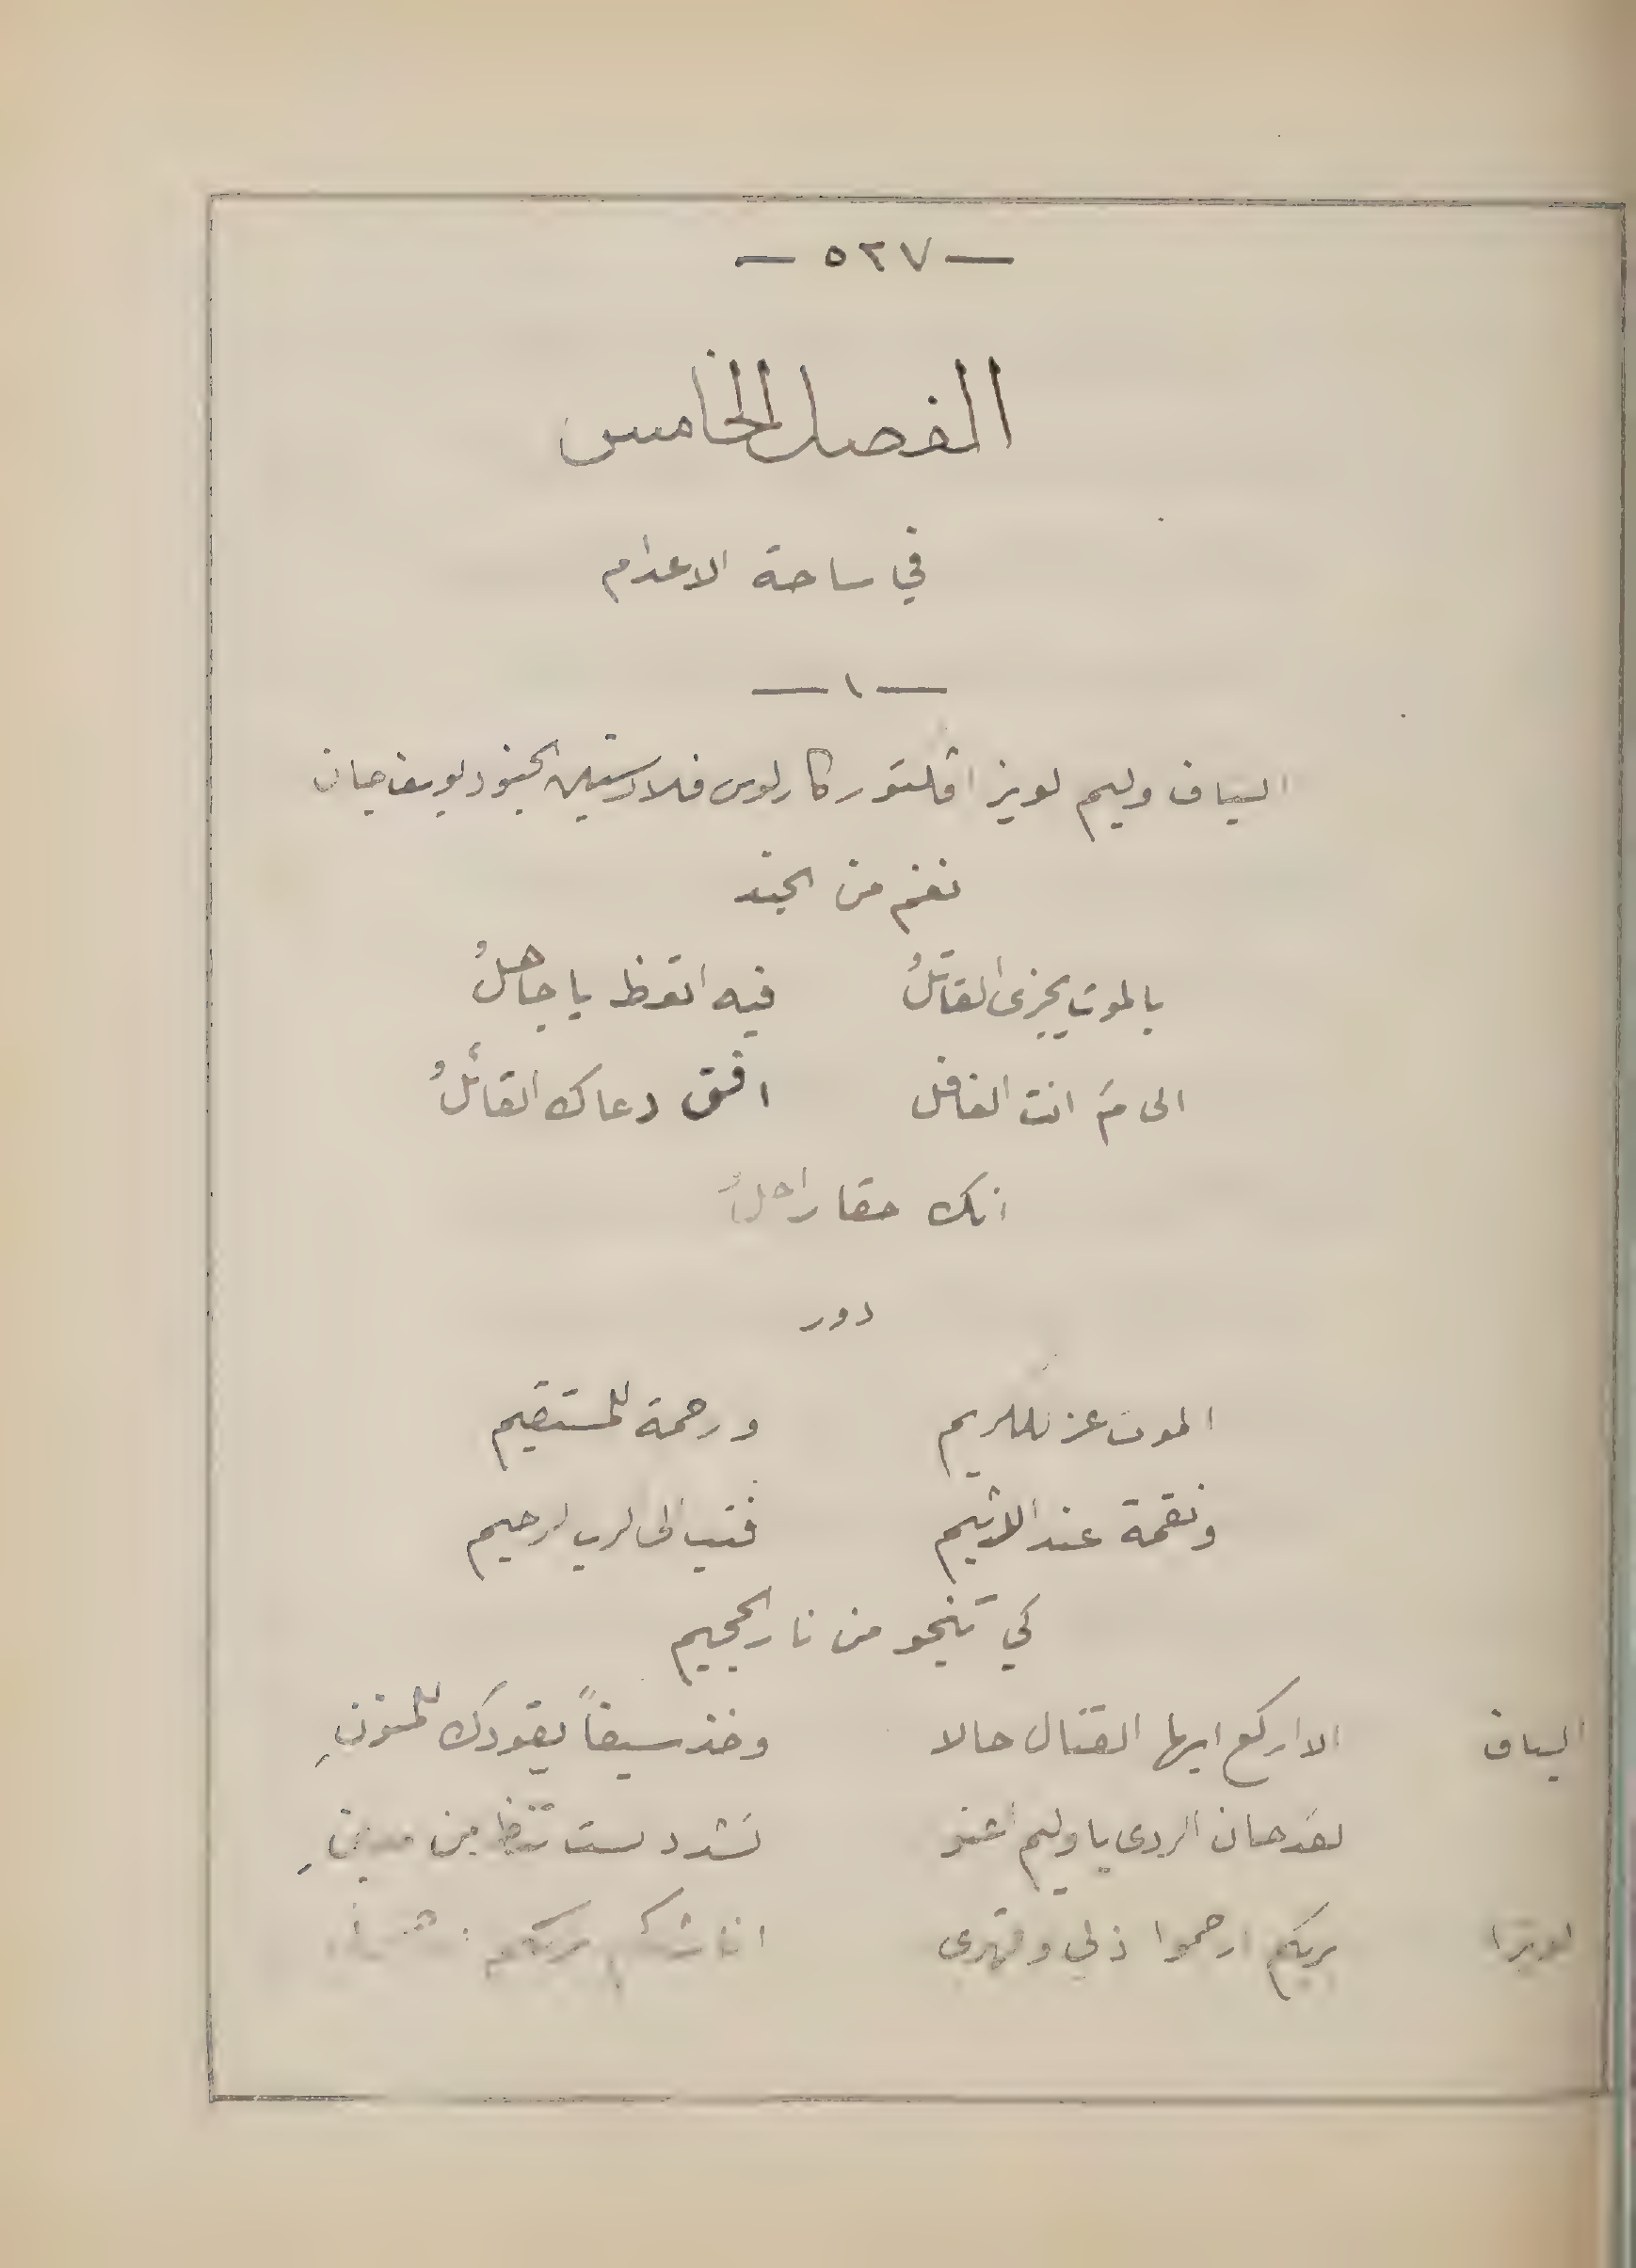 — ٥٢٧ —
الفصل الخامس
في ساحة الاعدام
— ١ —
السياف وليم لويز اڤلتور كارلوس فلادستين الجنود يوسف جان
نغم من الجند
بالموت يجزى القاتلُ فيه اتعظ يا جاهلُ
الى مَ انت الغافل افق دعاك القائلُ
انك حقا راحلُ
دور
الموت عز للكريم ورحمة للمستقيم
ونقمة عند الاثيم فتب الى الرب الرحيم
كي تنجو من نار الجحيم
السياف الا اركع ايها القتال حالا وخذ سيفاً يقودك للمنونِ
لقد حان الردى يا وليم لست تنظر من
لويزا بربكم ارحموا ذلي وقهري